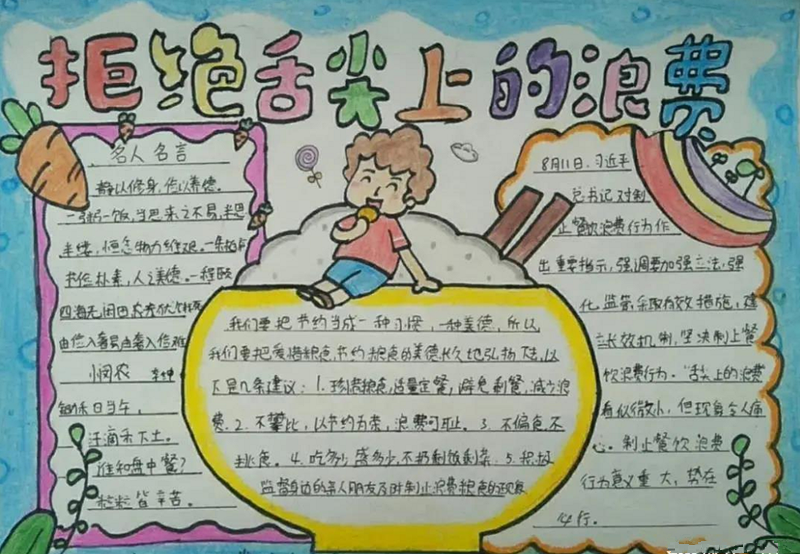 拒绝舌尖上的浪费
名人名言
静以修身,俭以养德。
一粥一饭,当思来之不易,半思
半缕,恒念物力维艰。一
书俭朴素,人之美德。一
四海无闲田农夫犹
由俭入奢易由奢入俭难
悯农
锄禾日当午,
汗滴禾下土。
谁知盘中餐?
粒粒皆辛苦。
我们要把节约当成一种习惯,一种美德,所以,
我们要把爱惜粮食节约粮食的美德长久地弘扬下去,以
下是几条建议:1.珍惜粮食,适量定餐,避免剩餐,减少浪
费.2.不攀比,以节约为荣,浪费可耻。3.不偏食不
挑食。4.吃多少,盛多少,不扔剩饭剩菜.5.积极
监督身边的亲人朋友及时制止浪费粮食的现象
8月11日,习近平
总书记对制
止餐饮浪费行为作
出重要指示,强调要加强立法,强
化监管,采取有效措施,建
立长效机制,坚决制止餐
饮浪费行为。"舌尖上的浪费
看似微小,但现象令人痛
心。制止餐饮浪费
行为意义重大,势在
必行。